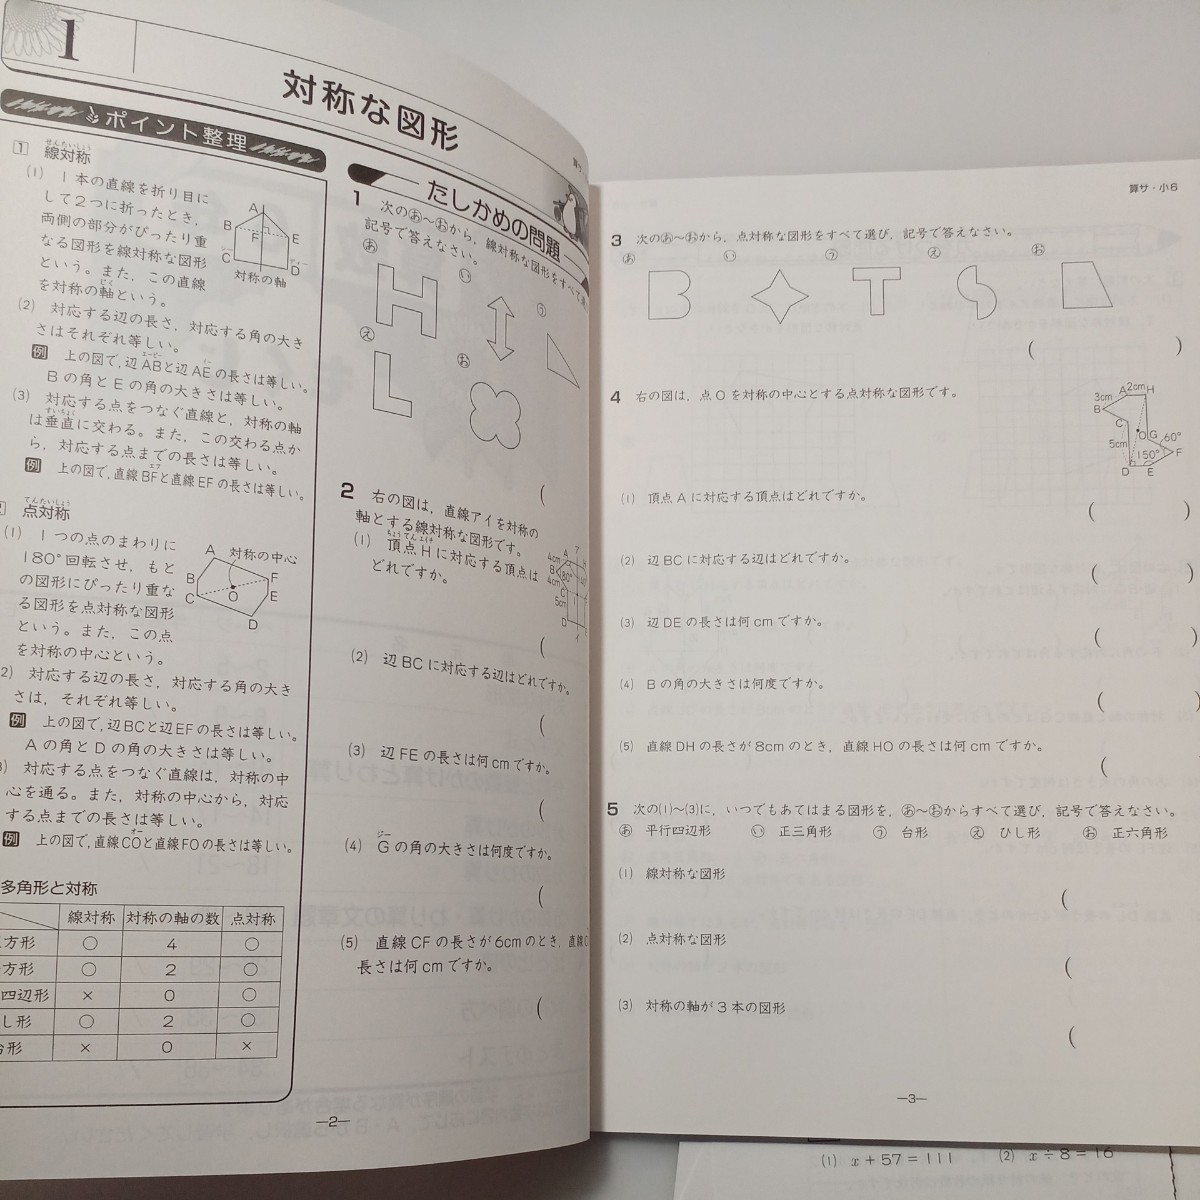 1
対称な図形
ポイント整理
1 線対称
(1) 1本の直線を折り目に
して2つに折ったとき，
両側の部分がぴったり重
なる図形を線対称な図形
という。また，この直線
を対称の軸という。
A
B
E
F
C
D
対称の軸
(2) 対応する辺の長さ，対応する角の大き
さはそれぞれ等しい。
例 上の図で，辺ABと辺AEの長さは等しい。
Bの角とEの角の大きさは等しい。
(3) 対応する点をつなぐ直線と，対称の軸
は垂直に交わる。また，この交わる点か
ら，対応する点までの長さは等しい。
例 上の図で，直線BFと直線EFの長さは等しい。
点対称
(1) 1つの点のまわりに
180°回転させ，もと
の図形にぴったり重な
る図形を点対称な図形
という。また，この点
を対称の中心という。
A 対称の中心
B
F
C
O
E
D
2) 対応する辺の長さ，対応する角の大き
さは，それぞれ等しい。
例 上の図で，辺BCと辺EFの長さは等しい。
Aの角とDの角の大きさは等しい。
) 対応する点をつなぐ直線は，対称の中
心を通る。また，対称の中心から，対応
する点までの長さは等しい。
例 上の図で，直線COと直線FOの長さは等しい。
多角形と対称
線対称 対称の軸の数 点対称
方形 ○ 4 ○
方形 ○ 2 ○
四辺形 × 0 ○
し形 ○ 2 ○
台形 × 0 ×
たしかめの問題
1 次のあ〜おから，線対称な図形をすべて選
記号で答えなさい。
あ
い
う
え
お
(
2 右の図は，直線アイを対称の
軸とする線対称な図形です。
(1) 頂点Hに対応する頂点は
どれですか。
(
(2) 辺BCに対応する辺はどれですか。
(
(3) 辺FEの長さは何cmですか。
(
(4) Gの角の大きさは何度ですか。
(
(5) 直線CFの長さが6cmのとき，直線
長さは何cmですか。
(
—2—
算サ・小6
3 次のあ〜おから，点対称な図形をすべて選び，記号で答えなさい。
あ
い
う
え
お
( )
4 右の図は，点Oを対称の中心とする点対称な図形です。
A 2cm H
3cm
B
C
O G 60°
5cm
F
150°
D E
(1) 頂点Aに対応する頂点はどれですか。
( )
(2) 辺BCに対応する辺はどれですか。
( )
(3) 辺DEの長さは何cmですか。
( )
(4) Bの角の大きさは何度ですか。
(
(5) 直線DHの長さが8cmのとき，直線HOの長さは何cmですか。
(
5 次の(1)〜(3)に，いつでもあてはまる図形を，あ〜おからすべて選び，記号で答えなさい。
あ 平行四辺形 い 正三角形 う 台形 え ひし形 お 正六角形
(1) 線対称な図形
(
(2) 点対称な図形
(
(3) 対称の軸が3本の図形
(
—3—
(1) x+57=111 (2) x÷8=16